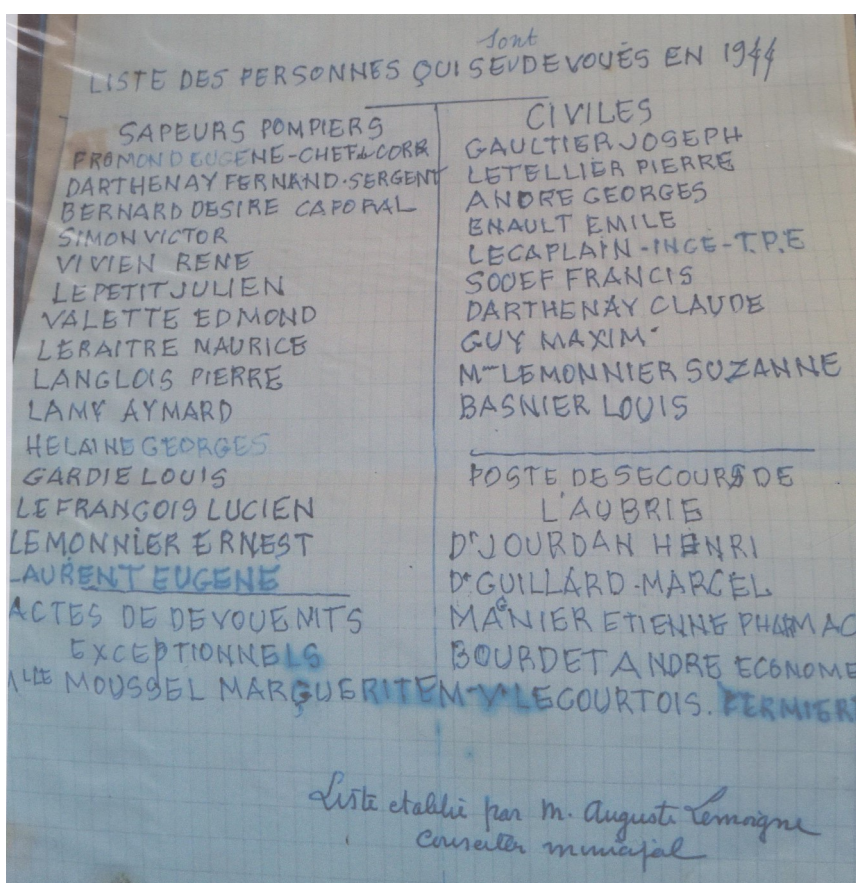 sont
LISTE DES PERSONNES QUI SEVDEVOUÉS EN 1944
SAPEURS POMPIERS
FROMOND EUGENE-CHEF de CORP
DARTHENAY FERNAND-SERGENT
BERNARD DESIRE CAPORAL
SIMON VICTOR
VIVIEN RENE
LEPETIT JULIEN
VALETTE EDMOND
LERAITRE MAURICE
LANGLOIS PIERRE
LAMY AYMARD
HELAINE GEORGES
GARDIE LOUIS
LEFRANÇOIS LUCIEN
LEMONNIER ERNEST
LAURENT EUGENE
ACTES DE DEVOUEMTS
EXCEPTIONNELS
CIVILES
GAULTIER JOSEPH
LETELLIER PIERRE
ANDRE GEORGES
ENAULT EMILE
LECAPLAIN-INGE-T.P.E
SODEF FRANCIS
DARTHENAY CLAUDE
GUY MAXIM
Mme LEMONNIER SUZANNE
BASNIER LOUIS
POSTE DE SECOURS DE
L'AUBRIE
Dr JOURDAN HENRI
Dr GUILLARD-MARCEL
MAGNIER ETIENNE PHARMAC
BOURDET ANDRE ECONOME
MLLE MOUSSEL MARGUERITE M-V LECOURTOIS. FERMIER
Liste etablie par M. Auguste Lemoigne
conseiller municipal